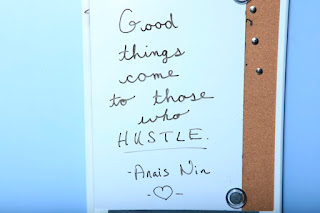 Good
things
come
to those
who
HUSTLE.
-Anais Nin
-♡-